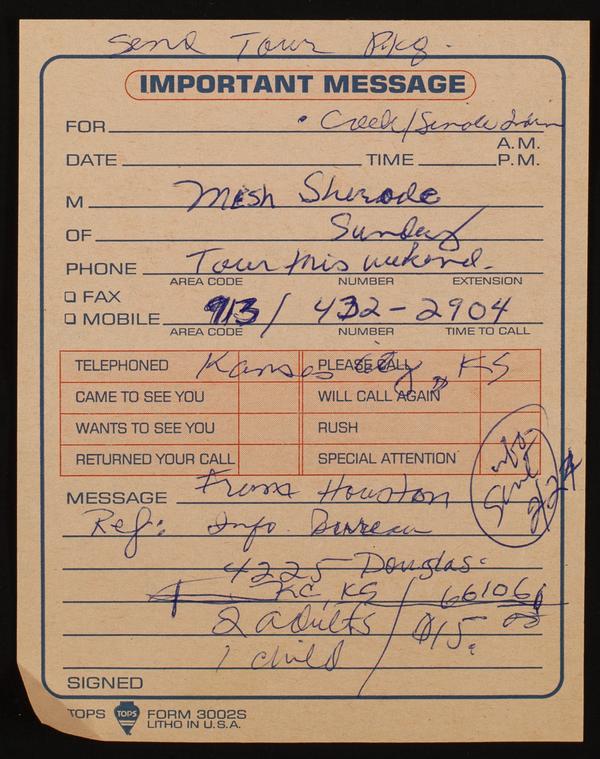 Send Tour Pkg.
IMPORTANT MESSAGE
FOR • Creek/Seminole Indian
A.M.
DATE TIME P.M.
M Mish Sherode
OF Sunday
PHONE Tour this weekend.
AREA CODE NUMBER EXTENSION
FAX
MOBILE 913/432-2904
AREA CODE NUMBER TIME TO CALL
Kansas City, KS
TELEPHONED PLEASE CALL
CAME TO SEE YOU WILL CALL AGAIN
WANTS TO SEE YOU RUSH
RETURNED YOUR CALL SPECIAL ATTENTION
info. Sent 2/27
MESSAGE From Houston
Ref: Info Bureau
4225 Douglas.
KC, KS / 66106
2 adults / $15.00
1 child
SIGNED
TOPS TOPS FORM 3002S
LITHO IN U.S.A.